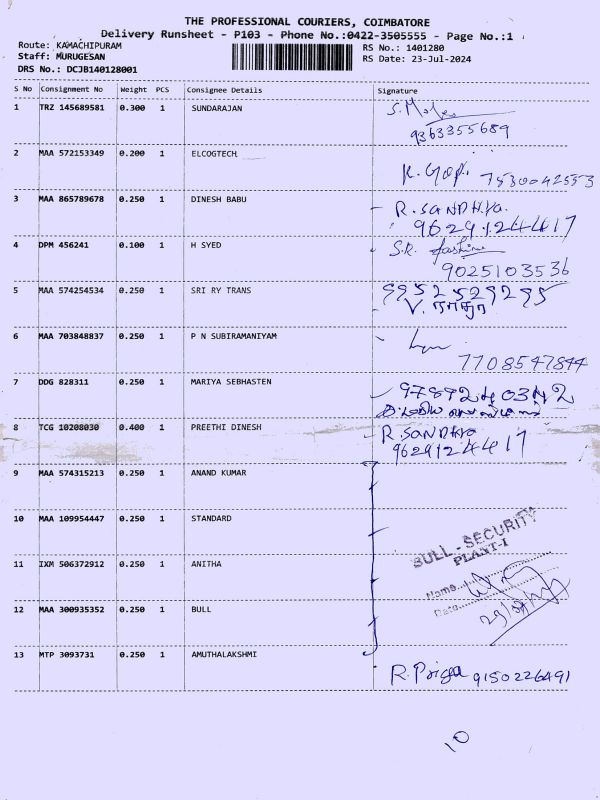 THE PROFESSIONAL COURIERS, COIMBATORE
Delivery Runsheet - P103 - Phone No.:0422-3505555 - Page No.:1
Route: KAMACHIPURAM
RS No.: 1401280
Staff: MURUGESAN
RS Date: 23-Jul-2024
DRS No.: DCJB140128001
S No Consignment No Weight PCS Consignee Details Signature
1 TRZ 145689581 0.300 1 SUNDARAJAN
9363355689
2 MAA 572153349 0.200 1 ELCOGTECH
K. Gopi 7530042553
3 MAA 865789678 0.250 1 DINESH BABU R. SANDHYA.
9629124417
4 DPM 456241 0.100 1 H SYED S.R.
9025103536
5 MAA 574254534 0.250 1 SRI RY TRANS 9952529295
V. ராதா
6 MAA 703848837 0.250 1 P N SUBIRAMANIYAM
7708547844
7 DDG 828311 0.250 1 MARIYA SEBHASTEN 9789240342
8 TCG 10208030 0.400 1 PREETHI DINESH R. SANDHYA
9629124417
9 MAA 574315213 0.250 1 ANAND KUMAR
10 MAA 109954447 0.250 1 STANDARD
BULL - SECURITY
PLANT-I
11 IXM 506372912 0.250 1 ANITHA
Name
12 MAA 300935352 0.250 1 BULL
Date
13 MTP 3093731 0.250 1 AMUTHALAKSHMI
R. Priya 9150226491
10